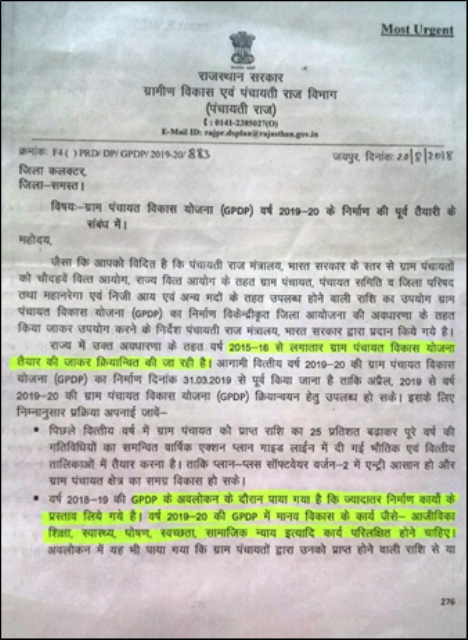 Most Urgent
राजस्थान सरकार
ग्रामीण विकास एवं पंचायती राज विभाग
(पंचायती राज)
: 0141-2385027(O)
E-Mail ID: rajpr.dsplan@rajasthan.gov.in
क्रमांक: F4 ( ) PRD/DP/GPDP/2019-20/883
जयपुर, दिनांक: 20/8/2018
जिला कलक्टर,
जिला-समस्त।
विषय:-ग्राम पंचायत विकास योजना (GPDP) वर्ष 2019-20 के निर्माण की पूर्व तैयारी के
संबंध में।
महोदय,
जैसा कि आपको विदित है कि पंचायती राज मंत्रालय, भारत सरकार के स्तर से ग्राम पंचायतों
को चौदहवें वित्त आयोग, राज्य वित्त आयोग के तहत ग्राम पंचायत, पंचायत समिति व जिला परिषद
तथा महानरेगा एवं निजी आय एवं अन्य मदों के तहत उपलब्ध होने वाली राशि का उपयोग ग्राम
पंचायत विकास योजना (GPDP) का निर्माण विकेन्द्रीकृत जिला आयोजना की अवधारणा के तहत
किया जाकर उपयोग करने के निर्देश पंचायती राज मंत्रालय, भारत सरकार द्वारा प्रदान किये गये है।
राज्य में उक्त अवधारणा के तहत वर्ष 2015-16 से लगातार ग्राम पंचायत विकास योजना
तैयार की जाकर क्रियान्वित की जा रही है। आगामी वित्तीय वर्ष 2019-20 की ग्राम पंचायत विकास
योजना (GPDP) का निर्माण दिनांक 31.03.2019 से पूर्व किया जाना है ताकि अप्रैल, 2019 से वर्ष
2019-20 की ग्राम पंचायत विकास योजना (GPDP) क्रियान्वयन हेतु उपलब्ध हो सके। इसके लिए
निम्नानुसार प्रक्रिया अपनाई जावें-
• पिछले वित्तीय वर्ष में ग्राम पंचायत को प्राप्त राशि का 25 प्रतिशत बढ़ाकर पूरे वर्ष की
गतिविधियों का समन्वित वार्षिक एक्शन प्लान गाइड लाईन में दी गई भौतिक एवं वित्तीय
तालिकाओं में तैयार करना है। ताकि प्लान-प्लस सॉफ्टवेयर वर्जन-2 में एन्ट्री आसान हो और
ग्राम पंचायत क्षेत्र का समग्र विकास हो सके।
• वर्ष 2018-19 की GPDP के अवलोकन के दौरान पाया गया है कि ज्यादातर निर्माण कार्यो के
प्रस्ताव लिये गये है। वर्ष 2019-20 की GPDP में मानव विकास के कार्य जैसे- आजीविका
शिक्षा, स्वास्थ्य, पोषण, स्वच्छता, सामाजिक न्याय इत्यादि कार्य परिलक्षित होने चाहिए।
अवलोकन में यह भी पाया गया कि ग्राम पंचायतों द्वारा उनको प्राप्त होने वाली राशि से या
276